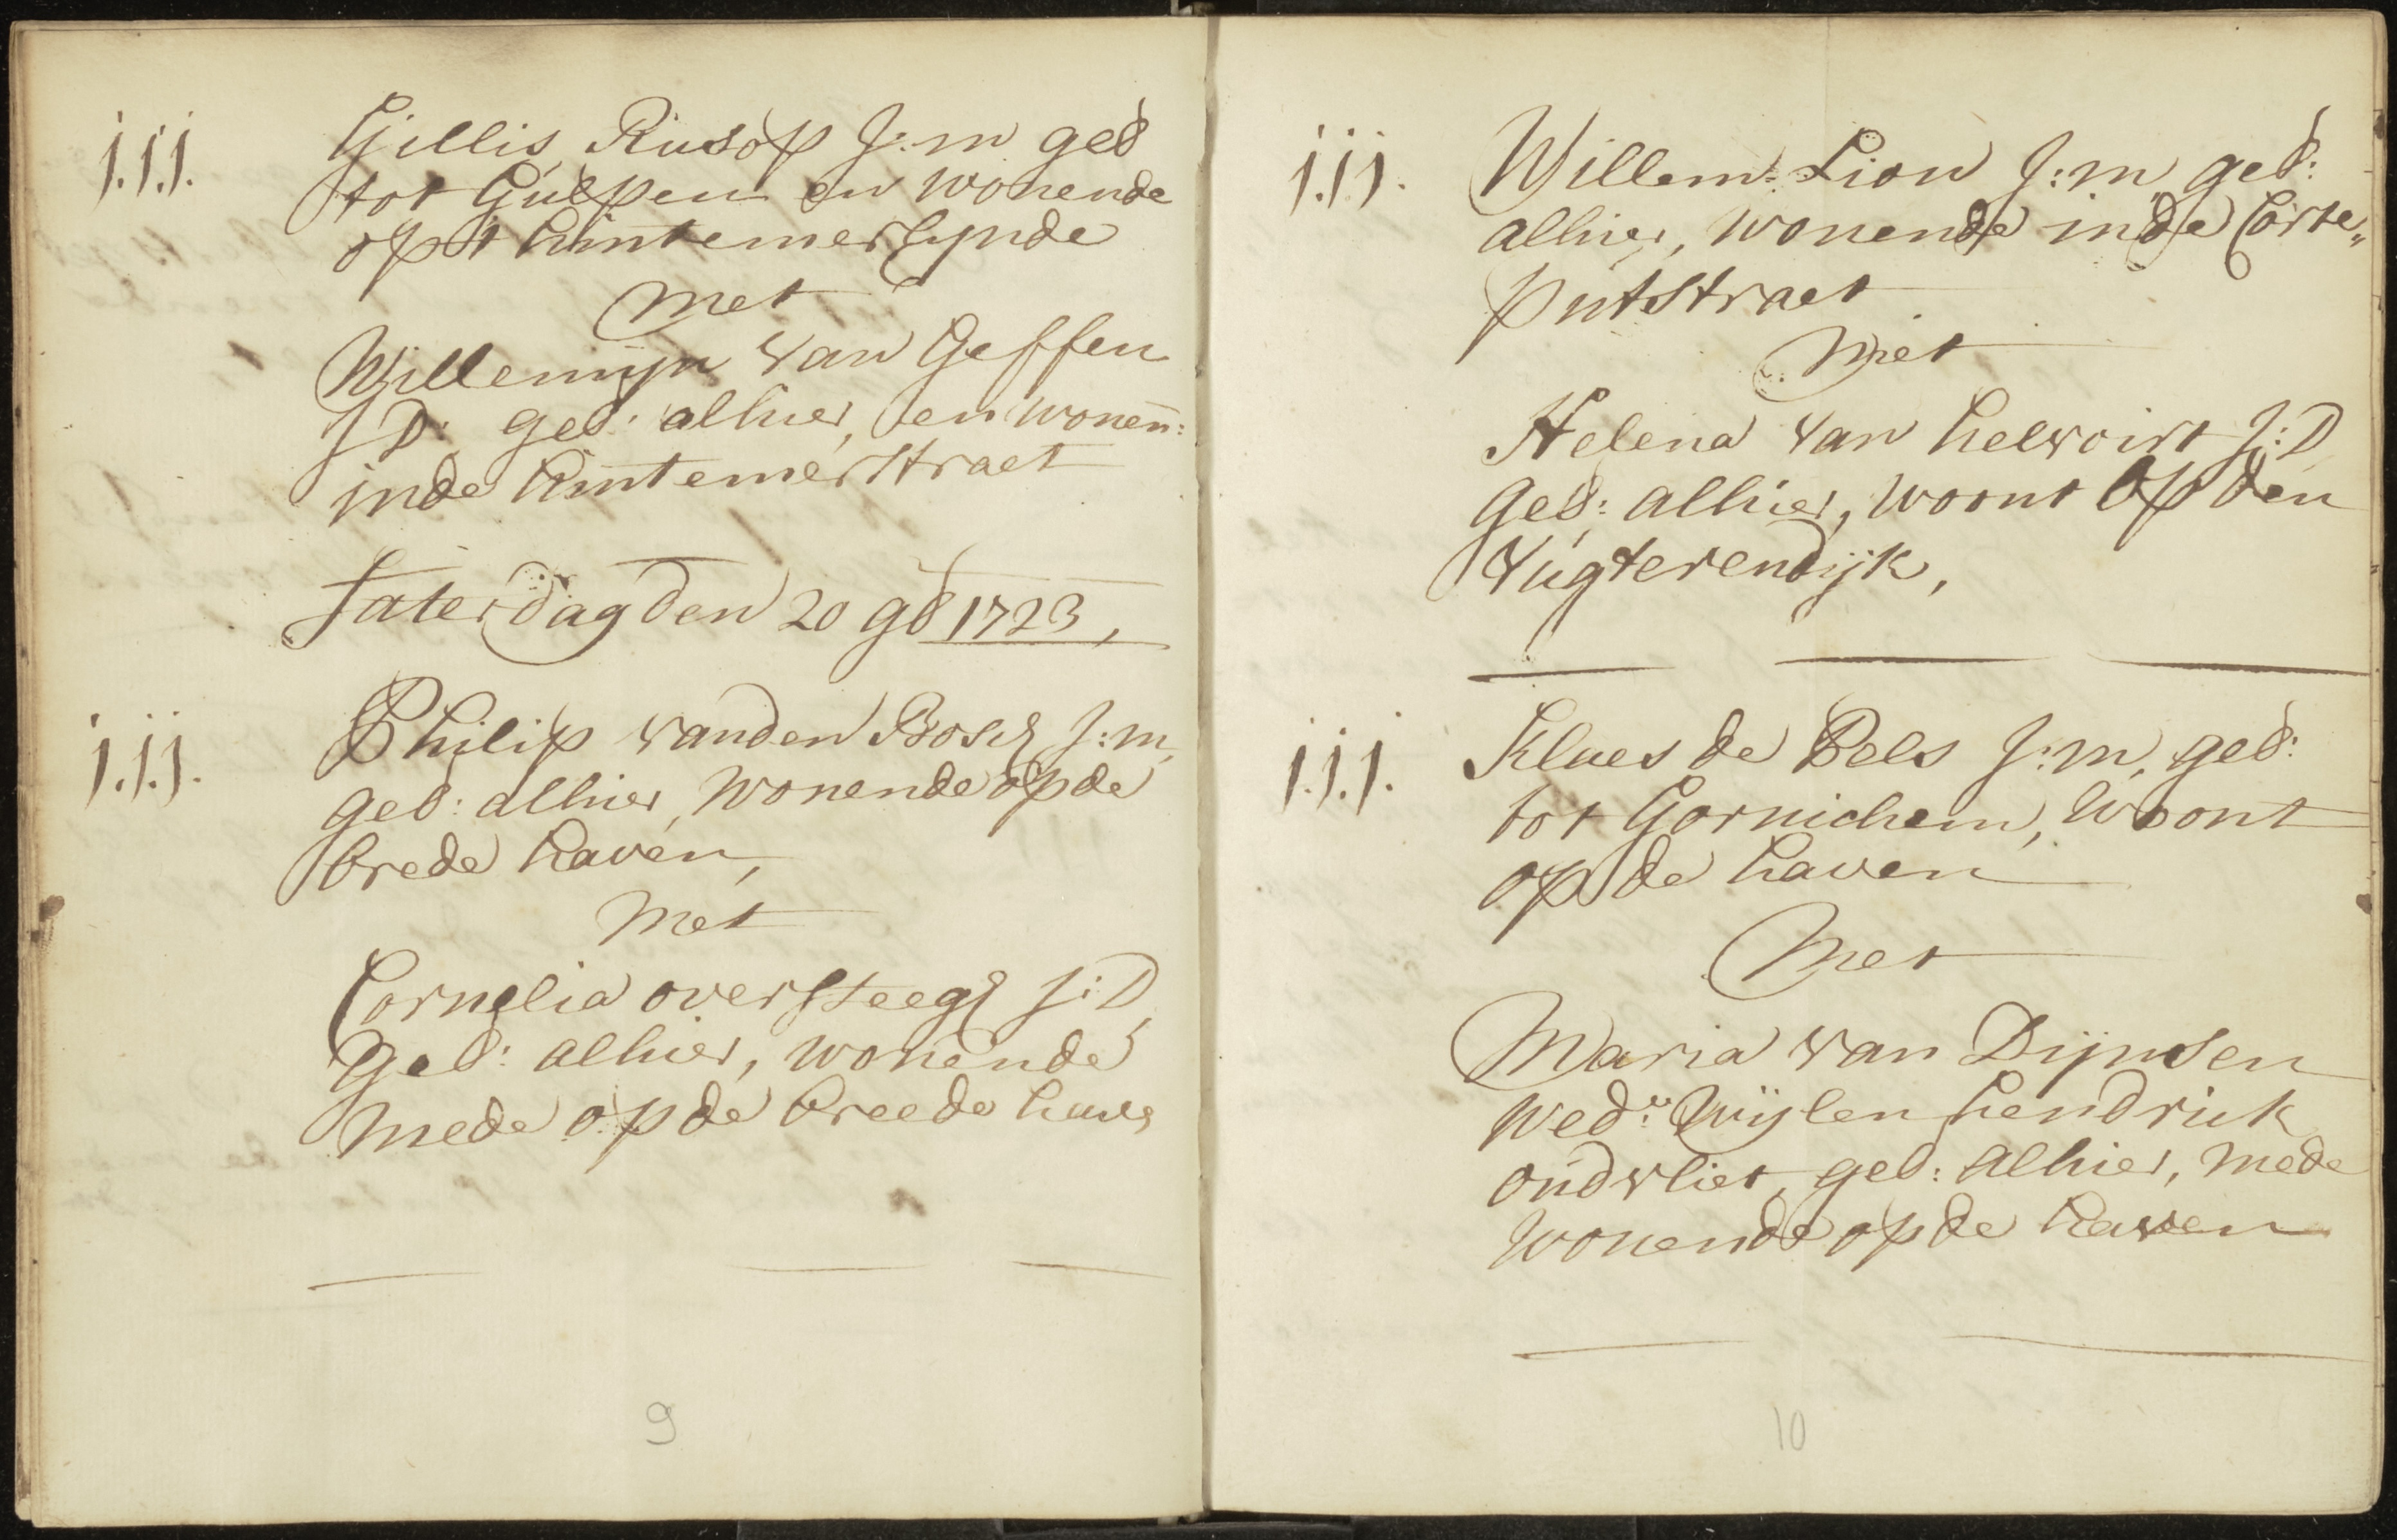 j.j.j.
Gillis Rusop J:m geb
tot Gulpen en wonende
opt hintemerEynde
met
Willemijn van Geffen
J D: geb: alhier, en wonen:
inde hintemerstraet
Saterdag den 20 9b 1723,
j.j.j.
Philip vanden Bosch J:m,
geb: alhier, wonende op de
brede haven,
met
Cornelia oversteegh J:D,
geb: alhier, wonende
mede op de breede have
9
j.j.j.
Willem Lion J:m geb:
alhier, wonende inde Corte„
putstraet
met
Helena van helvoirt J:D
geb: alhier, woont op den
vugterendijk,
j.j.j.
Klaes de Bels J:m, geb:
tot Gornichem, woont
op de haven
met
Maria van Dijnsen
wedᵉ: wijlen hendrick
oudvliet, geb: alhier, mede
wonende op de haven
10